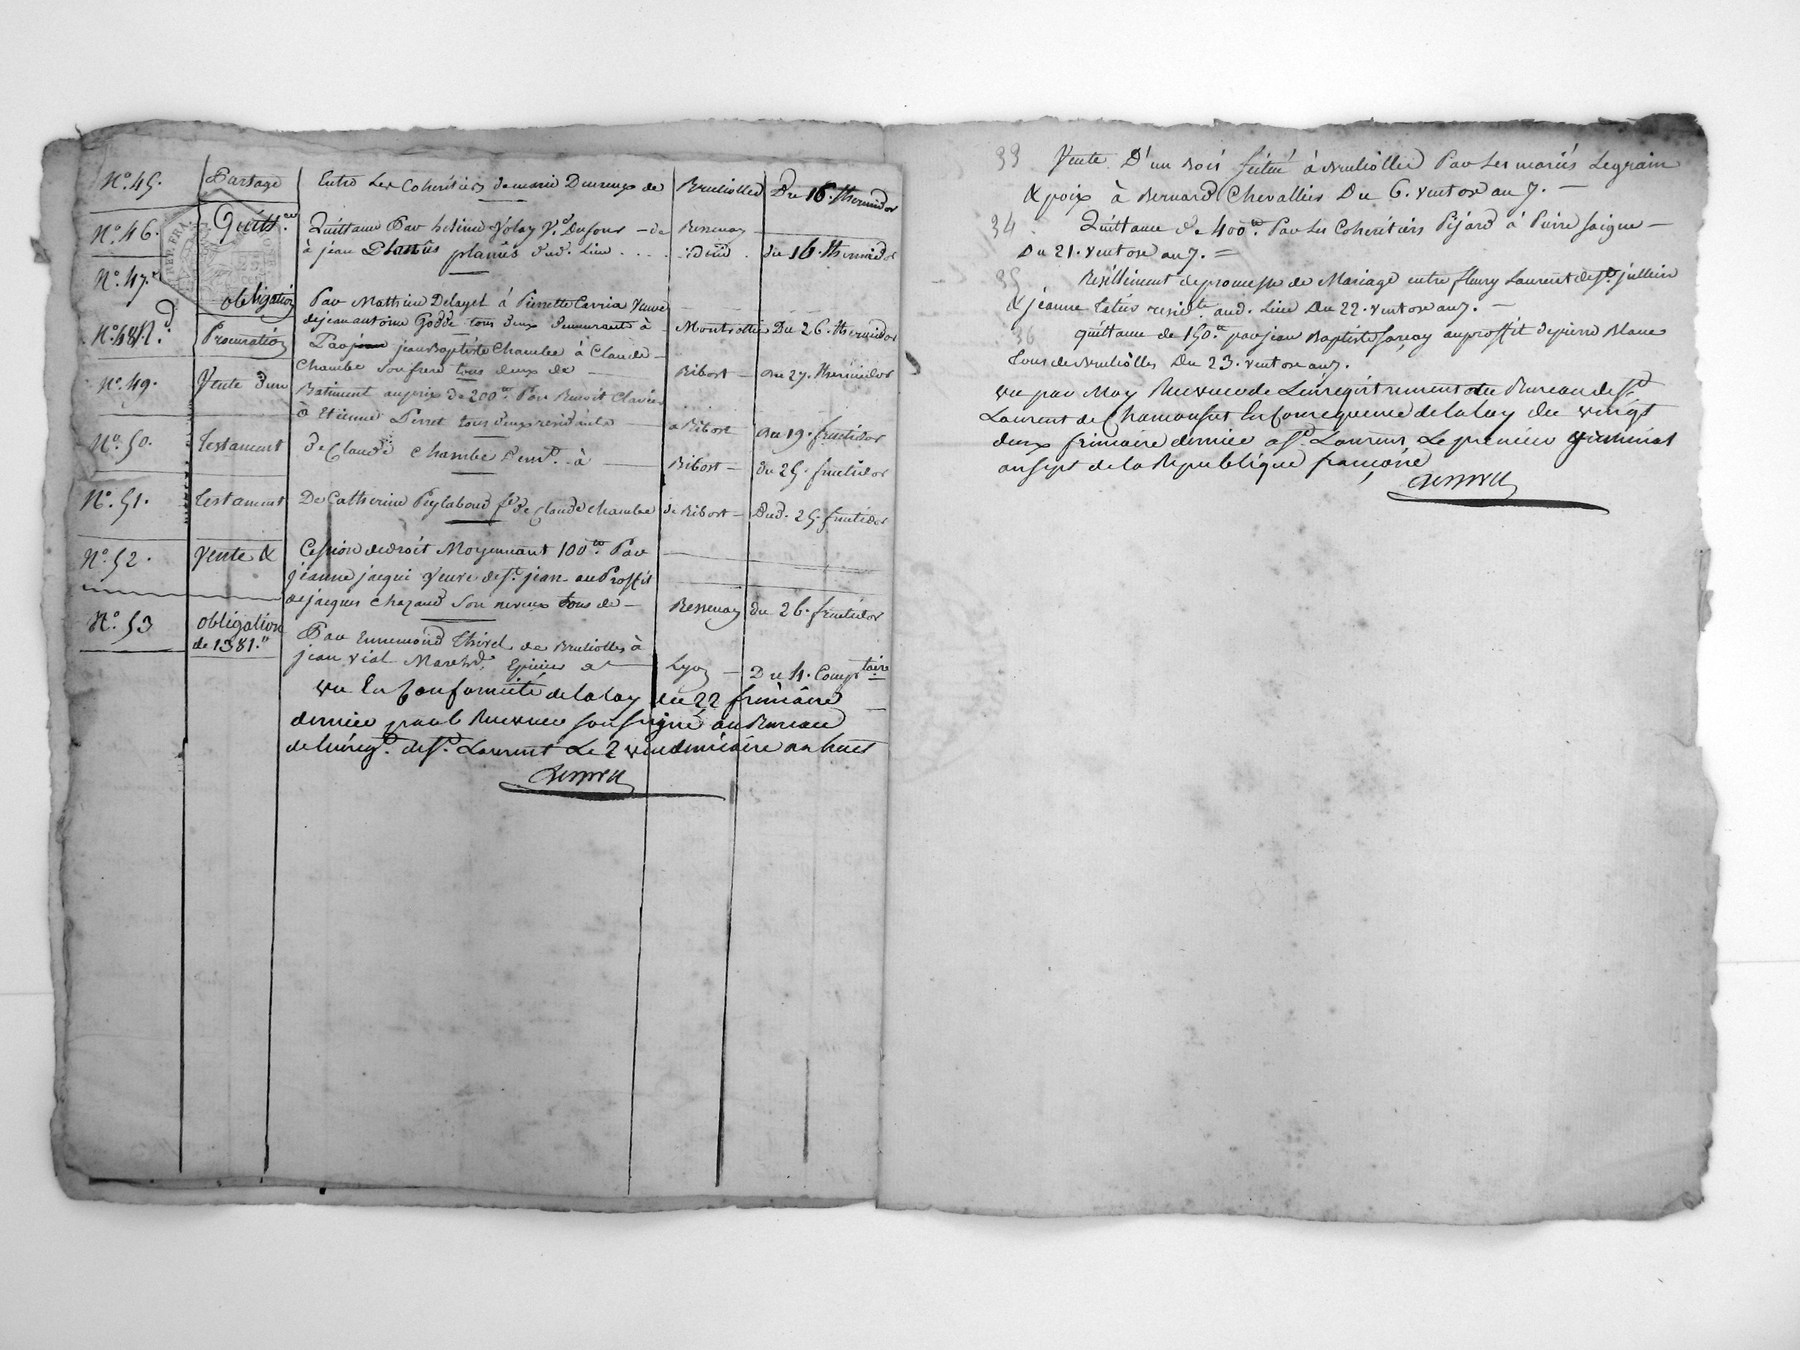 N.º 45. Partage Entre Les Coheritiers de marie de Bruliolles Du 16. thermidor
N.º 46. Quitt.ce Quittance Par Volay V.e Dufour - de Bessenay
à jean planus dud. Lieu . . . . idem . du 16. thermidor
N.º 47. obligation Par Mathieu Delayel à Pierrette Cervia Veuve
de jean antoine Godde tous deux demeurants à Montrottier Du 26. thermidor
N.º 48 Procuration Par jean Baptiste Chambe à Claude
Chambe son frere tous deux de Ribost - du 27. thermidor
N.º 49. Vente d'un Batiment au prix de 200.tt Par Benoit
à Etienne Perret tous deux residents à Ribost du 19. fructidor
N.º 50. Testament de Claude Chambe dem.t à Ribost - du 25. fructidor
N.º 51. Testament De Catherine Peylaboud f.e de Claude chambe de Ribost - Dud. 25. fructidor
N.º 52. Vente & Cession de droit Moyennant 100.tt Par
jeanne jacqui Veuve de S.t jean au Proffit
de jacques Chazaud son neveux tous de - Bessenay du 26. fructidor
N.º 53 obligation Par Ennemond Thivel de Brulioles à
de 1381.tt jean Vial March.d Epicier à Lyon - Du 4. Compl.taire
vu En Conformité de la loy du 22 frimaire
derniee par le Receveur soussigné au Bureau
de l'enreg.t de S.t Laurent Le 2 vendemiaire an huit
33 Vente D'un bois situé à Brulliolles Par les mariés Legrain
& poix à Bernard Chevallier Du 6. ventose an 7. -
34 Quittance de 400.tt Par les Coheritiers Pijard à Pierre Saigne -
Du 21. ventose an 7. =
35 Resiliment de promesse de Mariage entre fleury Laurent de S.t jullien
& jeanne resid.te aud. Lieu Du 22. ventose an 7. -
36 quittance de 150.tt par jean Baptiste au proffit de pierre Blanc
tous de Brulliolles Du 23. ventose an 7.
vu par Moy Receveur de L'enregistrement au Bureau de S.t
Laurent de Chamousset En Consequence de la loy du vingt
deux frimaire derniee a S.t Laurent Le premier germinal
an sept de la Republique francoise